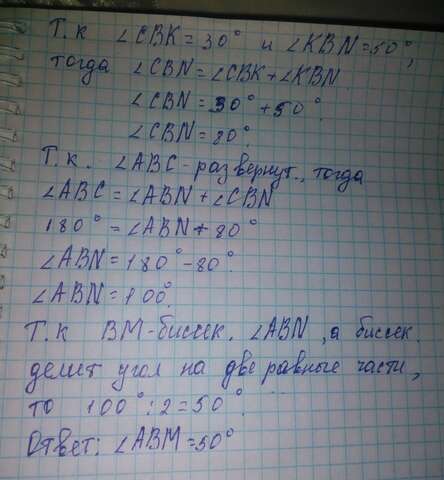 Т.к ∠CBK = 30° и ∠KBN = 50°,
тогда ∠CBN = ∠CBK + ∠KBN
∠CBN = 30° + 50°.
∠CBN = 80°.
Т.к. ∠ABC - развернут., тогда
∠ABC = ∠ABN + ∠CBN
180° = ∠ABN + 80°
∠ABN = 180° - 80°.
∠ABN = 100°.
Т.к BM - биссек. ∠ABN, а биссек.
делит угол на две равные части,
то 100° : 2 = 50°.
Ответ: ∠ABM = 50°